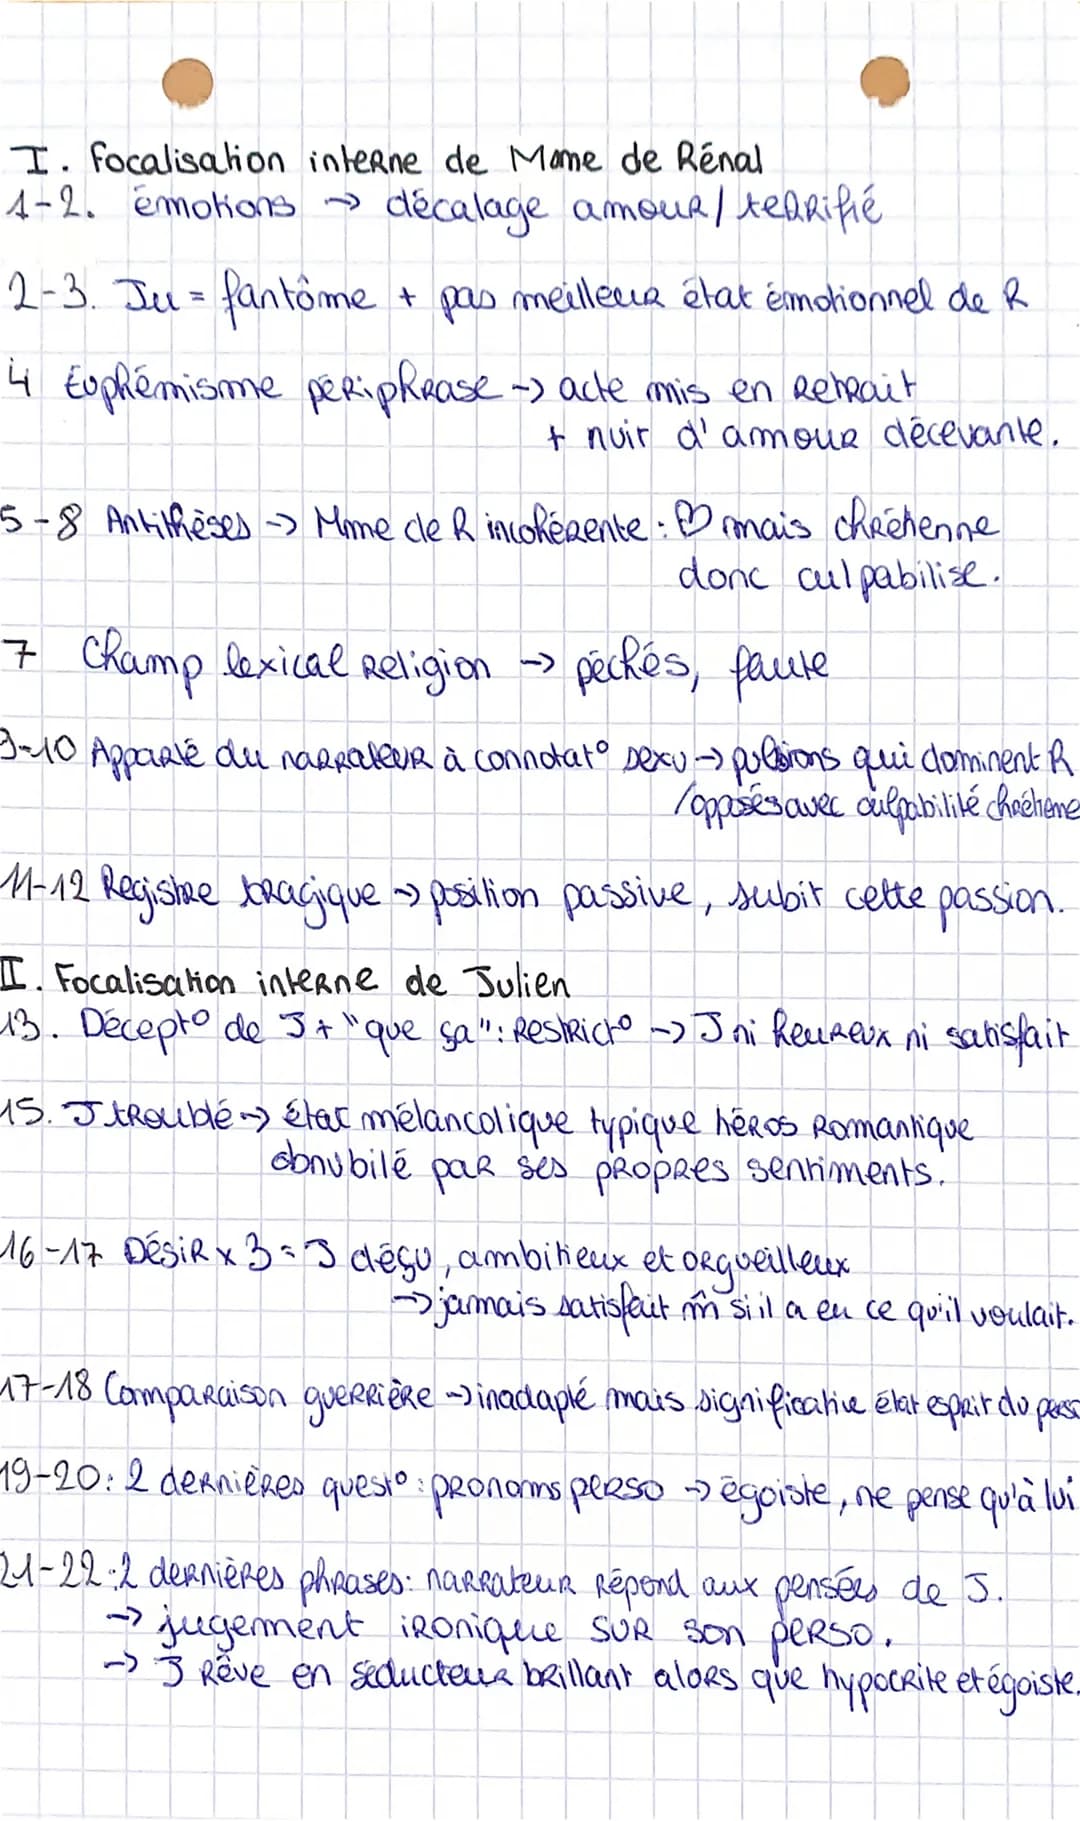 I. Focalisation interne de Mme de Rénal
1-2. émotions → décalage amour/ terrifié
2-3. Ju = fantôme + pas meilleur état émotionnel de R
4 Euphémisme périphrase → acte mis en retrait
+ nuit d'amour décevante.
5-8 Antithèses → Mme de R incohérente : ♡ mais chrétienne
donc culpabilise.
7 Champ lexical religion → péchés, faute
9-10 Apparté du narrateur à connotat° sexu → pulsions qui dominent R
/opposés avec culpabilité chrétienne
11-12 Registre tragique → position passive, subit cette passion.
II. Focalisation interne de Julien
13. Décept° de J + "que ça" : Restrict° → J ni heureux ni satisfait
15. J troublé → état mélancolique typique héros Romantique
obnubilé par ses propres sentiments.
16-17 Désir x 3 = J déçu, ambitieux et orgueilleux
→ jamais satisfait m̂ si il a eu ce qu'il voulait.
17-18 Comparaison guerrière → inadapté mais significative état esprit du perso
19-20 : 2 dernières quest° : pronoms perso → égoiste, ne pense qu'à lui
21-22 : 2 dernières phrases : narrateur répond aux pensées de J.
→ jugement ironique sur son perso.
→ J Rêve en séducteur brillant alors que hypocrite et égoiste.